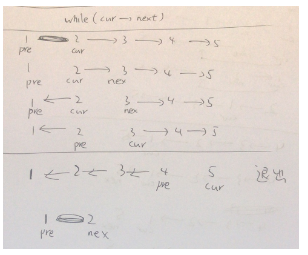 while (cur → next)
1 2 → 3 → 4 → 5
pre cur
1 2 → 3 → 4 → 5
pre cur nex
1 ← 2 3 → 4 → 5
pre cur nex
1 ← 2 3 → 4 → 5
pre cur
1 ← 2 ← 3 ← 4 5
pre cur
1 2
pre nex